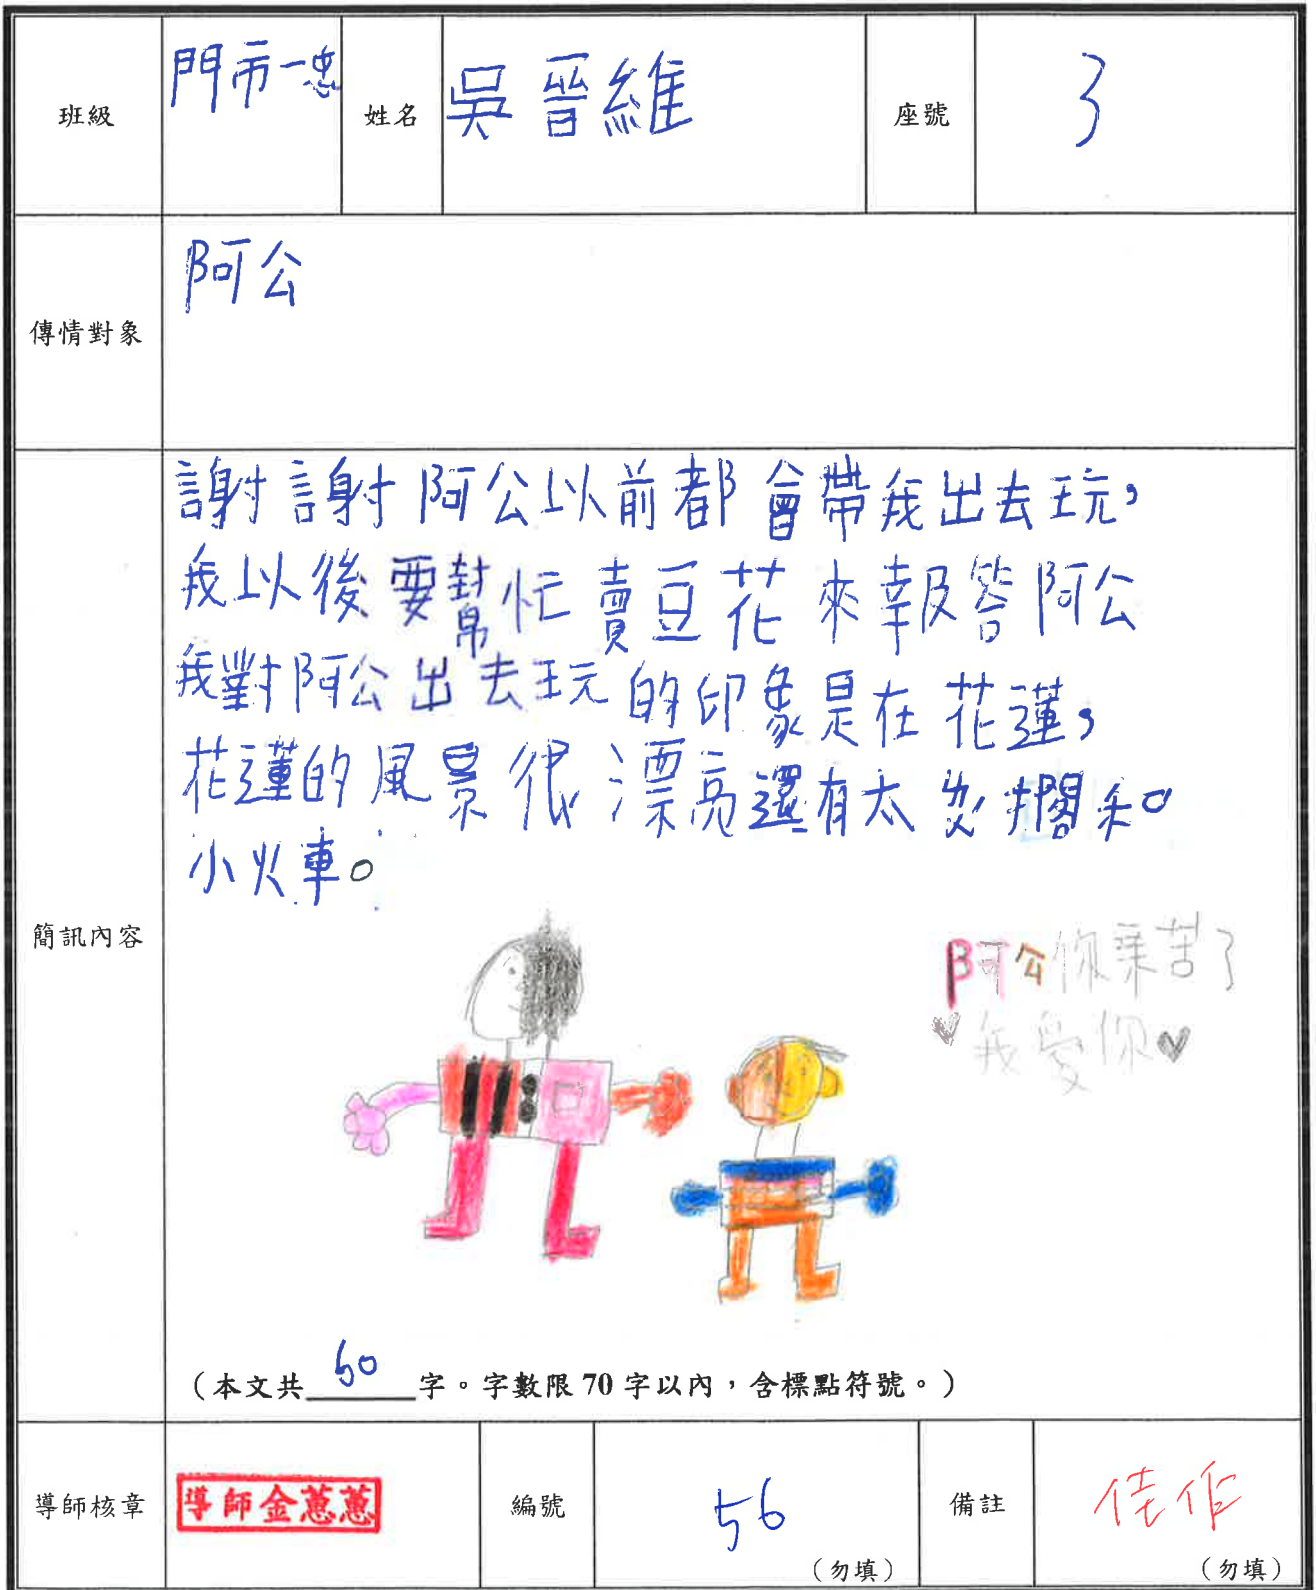 班級 門市一忠 姓名 吳晉維 座號 3
傳情對象 阿公
謝謝阿公以前都會帶我出去玩，
我以後要幫忙賣豆花來報答阿公
我對阿公出去玩的印象是在花蓮，
花蓮的風景很漂亮還有太
小火車。
簡訊內容
阿公你辛苦了
♥我愛你♥
（本文共 60 字。字數限 70 字以內，含標點符號。）
導師核章 導師金蕙蕙 編號 56 （勿填） 備註 佳作 （勿填）